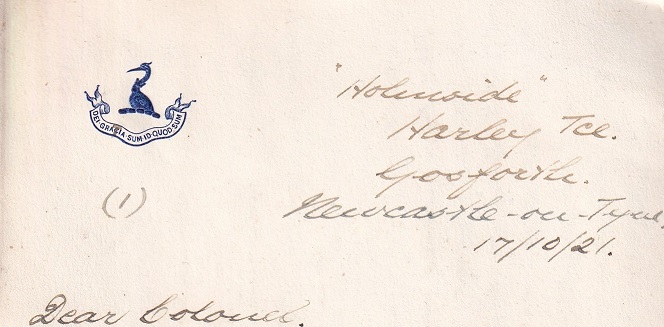 DEI·GRACIA·SUM·ID·QUOD·SUM
"Holmside"
Harley Tce.
Gosforth.
Newcastle-on-Tyne,
17/10/21.
(1)
Dear Colonel.